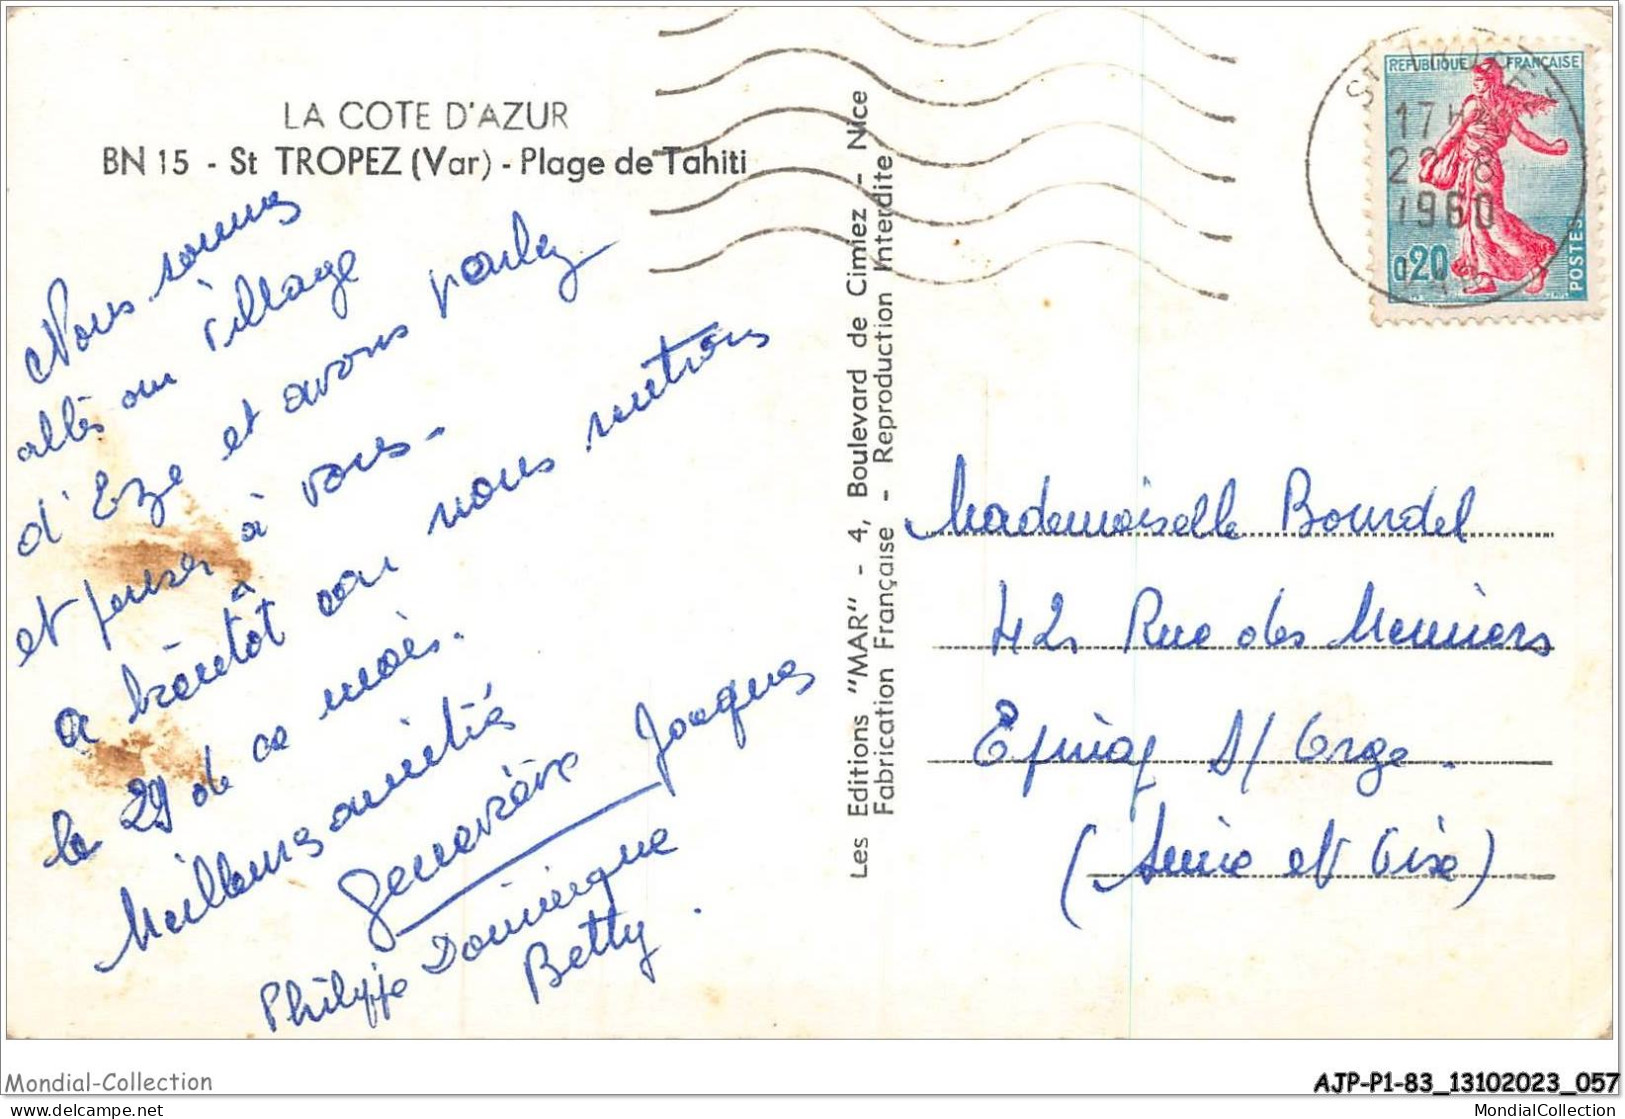 LA COTE D'AZUR
BN 15 - St TROPEZ (Var) - Plage de Tahiti
Nous sommes
allés au village
d'Eze et avons parlez
et penser à vous -
a bientôt car nous rentrons
le 29 de ce mois.
Meilleures amitiés
Geneviève Jacques
Philippe Dominique
Betty.
Les Editions "MAR" - 4, Boulevard de Cimiez - Nice
Fabrication Française - Reproduction Interdite
REPUBLIQUE FRANÇAISE
0,20
POSTES
St TROPEZ
17H
8
1960
VAR
Mademoiselle Bourdel
42 Rue des Meuniers
Epinay S/ Orge.
(Seine et Oise)
Mondial-Collection
AJP-P1-83_13102023_057
www.delcampe.net
MondialCollection